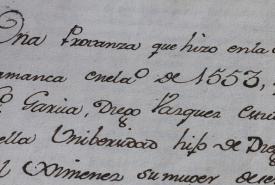 Una Provanza que hizo en la
amanca enel a.º de 1553,
Garcia, Diego Vasquez
ella Unibersidad hijº de Die
Ximenez su muger